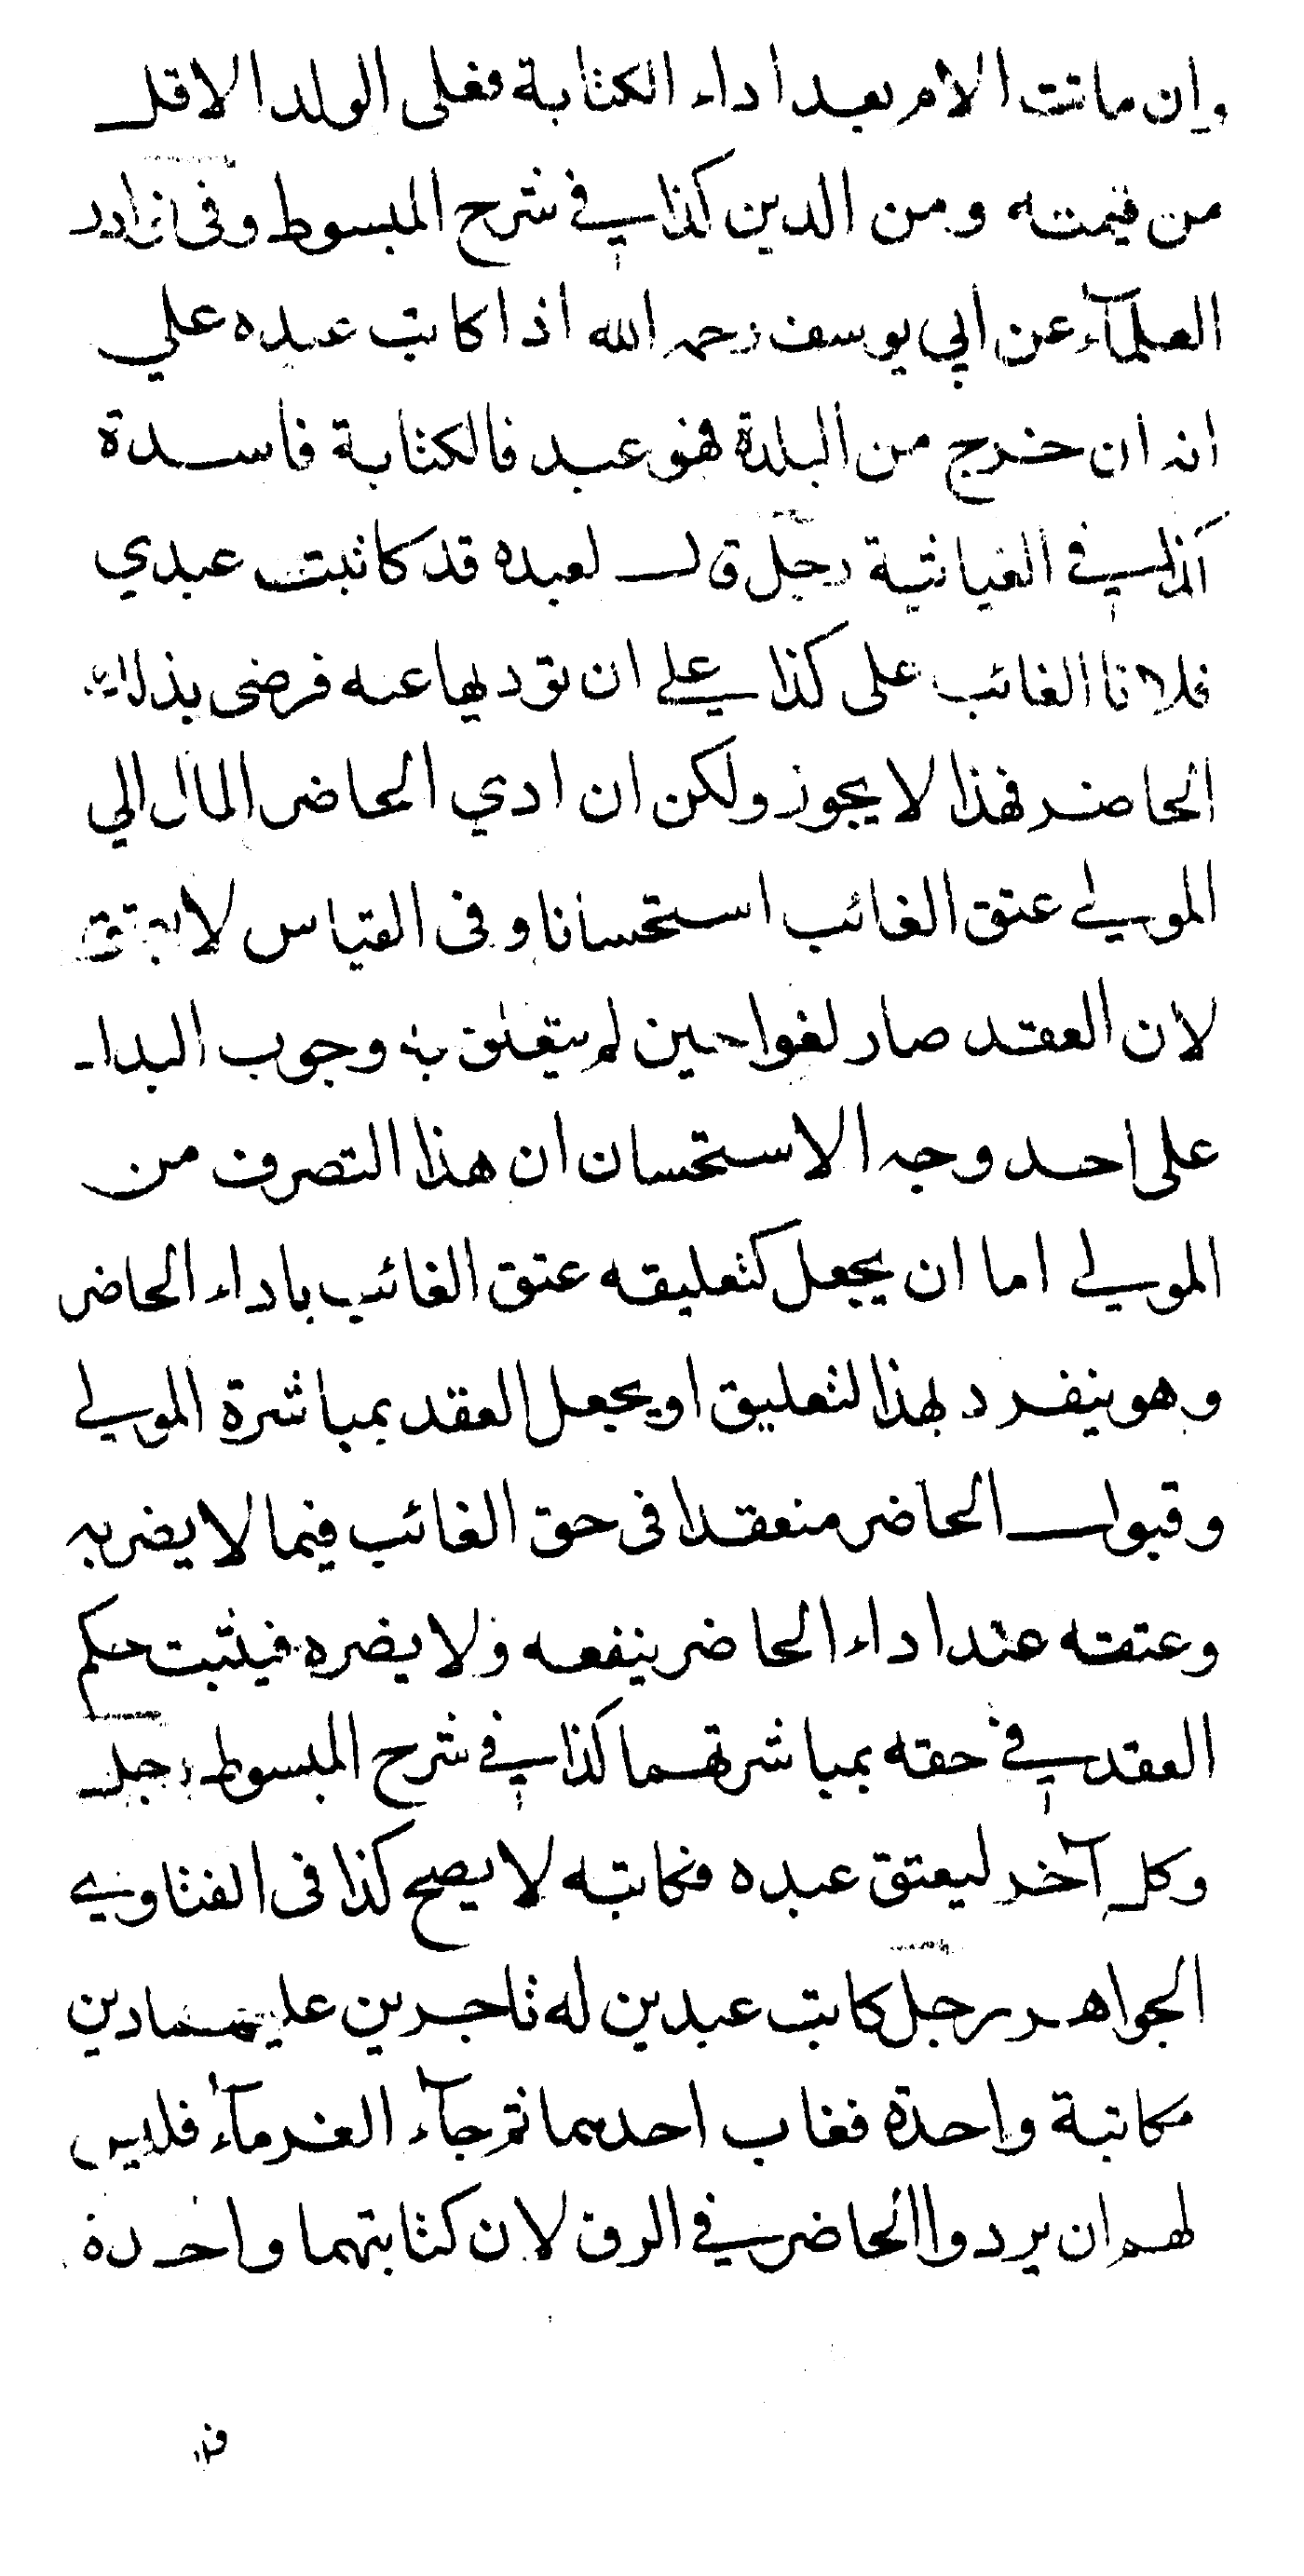 وان ماتت الام بعد اداء الكتابة فعلى الولد الاقل
من قيمته ومن الدين كذا في شرح المبسوط وفى نوادر
العلمآء عن ابي يوسف رحمه الله اذا كاتب عبده علي
انه ان خرج من البلدة فهو عبد فالكتابة فاسدة
كذا في الغياثية رجل قال لعبده قد كاتبت عبدي
فلانا الغائب على كذا علي ان تؤديها عنه فرضى بذلك
الحاضر فهذا لا يجوز ولكن ان ادي الحاضر المال الي
المولي عتق الغائب استحسانا وفى القياس لا يعتق
لان العقد صار لغوا حين لم يتعلق به وجوب البدل
على احد وجه الاستحسان ان هذا التصرف من
المولي اما ان يجعل كتعليقه عتق الغائب باداء الحاضر
وهو ينفرد بهذا لتعليق او يجعل العقد بمباشرة المولي
وقبول الحاضر منعقدا فى حق الغائب فيما لا يضر به
وعتقه عند اداء الحاضر ينفعه ولا يضره فيثبت حكم
العقد في حقه بمباشرتهما كذا في شرح المبسوط رجل
وكل آخر ليعتق عبده فكاتبه لا يصح كذا فى الفتاوي
الجواهر رجل كاتب عبدين له تاجرين عليهما دين
مكاتبة واحدة فغاب احدهما ثم جآء الغرمآء فليس
لهم ان يردوا الحاضر في الرق لان كتابتهما واحدة